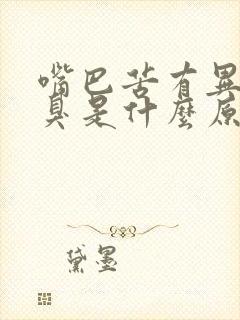 嘴巴苦有異
臭是什麼原
黛墨